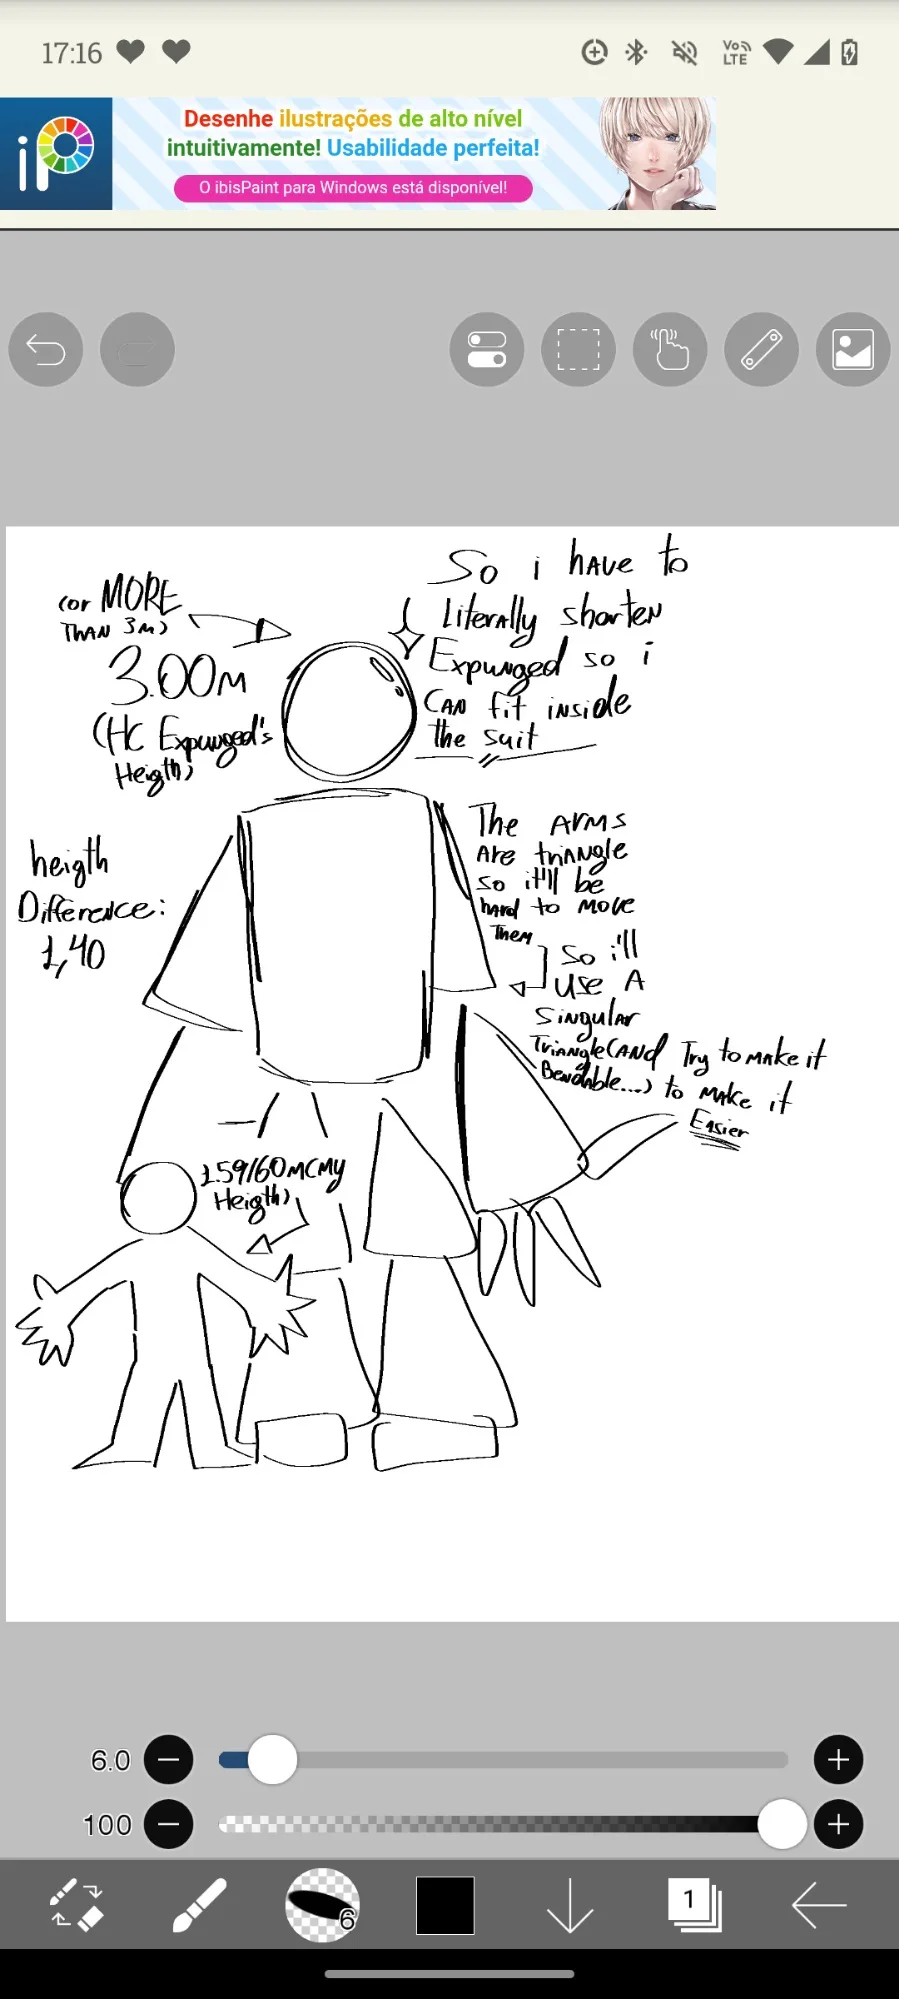 17:16
Vo LTE
iP
Desenhe ilustrações de alto nível
intuitivamente! Usabilidade perfeita!
O ibisPaint para Windows está disponível!
(or MORE
THAN 3M)
3.00M
(HC Expunged's
Heigth)
So i have to
Literally shorten
Expunged so i
CAN fit inside
the suit
heigth
Difference:
1,40
The ARMS
Are triangle
so it'll be
hard to move
Them
So i'll
Use A
Singular
Triangle (AND Try to make it
Bendable....) to make it
Easier
1.59/60M (My
Heigth)
6.0
100
6
1